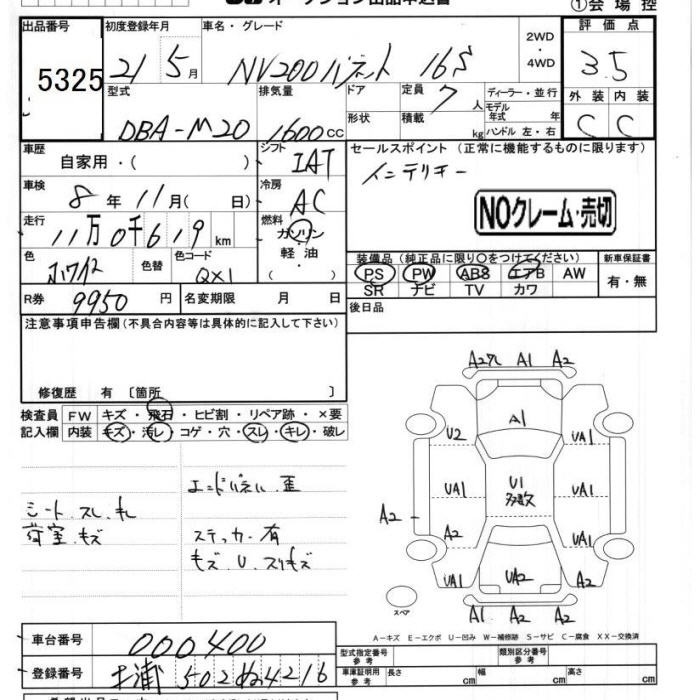 オークション出品申込書 ①会場控
出品番号 初度登録年月 車名・グレード 2WD・4WD 評価点
5325 21年 5月 NV200バネット 16S 3.5
型式 排気量 ドア 定員 7人 ディーラー・並行 外装 内装
DBA-M20 1600cc 形状 積載 kg モデル年式 年 ハンドル 左・右 C C
車歴 自家用・( ) シフト IAT セールスポイント (正常に機能するものに限ります)
車検 8年 11月( 日) 冷房 AC インテリキー
走行 11万0千619km 燃料 ガソリン・軽油・( ) NOクレーム・売切
色 ホワイト 色替 色コード QX1 装備品 (純正品に限り○をつけてください) 新車保証書
PS PW ABS エアB AW 有・無
SR ナビ TV カワ
R券 9950円 名変期限 月 日 後日品
注意事項申告欄 (不具合内容等は具体的に記入して下さい)
修復歴 有 〔箇所 〕
検査員 FW キズ・飛石・ヒビ割・リペア跡・×要
記入欄 内装 キズ・汚レ・コゲ・穴・スレ・キレ・破レ
エンドパネル歪
シート スレ キレ
荷室 キズ
ステッカー有
キズ U スリキズ
A2 A1 A2
A1
U2 UA1
UA1 U1多数 UA1
A2 A2 UA1
UA1 UA2 A2
スペア A1 A2 A2
A－キズ E－エクボ U－凹み W－補修跡 S－サビ C－腐食 XX－交換済
車台番号 000400 型式指定番号 参考 類別区分番号 参考
登録番号 土浦 502 ぬ4216 車庫証明用 参考 長さ cm 幅 cm 高さ cm